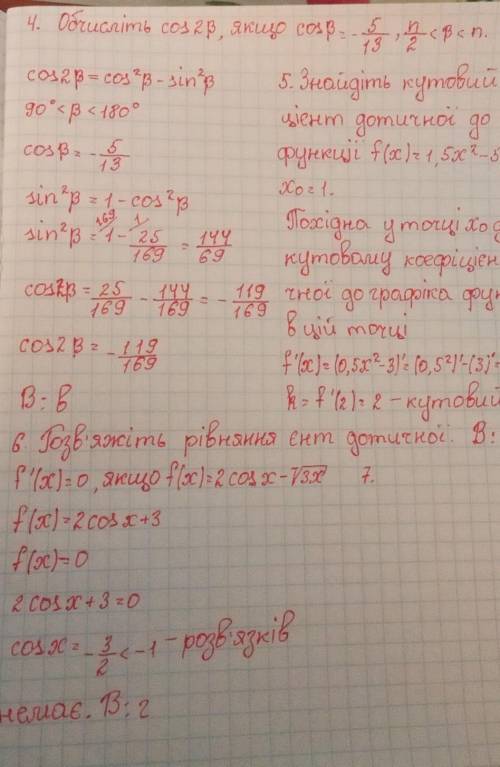 4. Обчисліть cos2β, якщо cosβ = -5/13, п/2 < β < п.
cos2β = cos²β - sin²β
90° < β < 180°
cosβ = -5/13
sin²β = 1 - cos²β
169 1
sin²β = 1 - 25/169 = 144/69
cos2β = 25/169 - 144/169 = -119/169
cos2β = -119/169
В: в
5. Знайдіть кутовий
цієнт дотичної до
функції f(x) = 1,5x² - 5
x₀ = 1.
Похідна у точці x₀ д
кутовому коефіцієн
чної до графіка фун
в цій точці
f'(x) = (0,5x² - 3)' = (0,5²)' - (3)' =
k = f'(2) = 2 - кутовий
єнт дотичної. В:
6. Розв'яжіть рівняння
f'(x) = 0, якщо f(x) = 2cosx - √3x
f(x) = 2cosx + 3
f(x) = 0
2cosx + 3 = 0
cosx = -3/2 < -1 - розв'язків
немає. В: г
7.